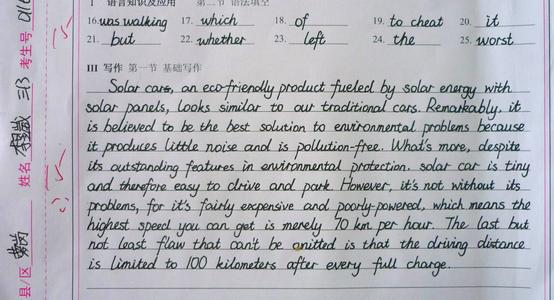 I 语言知识及应用 第二节 语法填空
16. was walking 17. which 18. of 19. to cheat 20. it
21. but 22. whether 23. left 24. the 25. worst
III 写作 第一节 基础写作
Solar cars, an eco-friendly product fueled by solar energy with
solar panels, looks similar to our traditional cars. Remarkably, it
is believed to be the best solution to environmental problems because
it produces little noise and is pollution-free. What's more, despite
its outstanding features in environmental protection, solar car is tiny
and therefore easy to drive and park. However, it's not without its
problems, for it's fairly expensive and poorly-powered, which means the
highest speed you can get is merely 70 km per hour. The last but
not least flaw that can't be omitted is that the driving distance
is limited to 100 kilometers after every full charge.
考生号
姓名
县/区